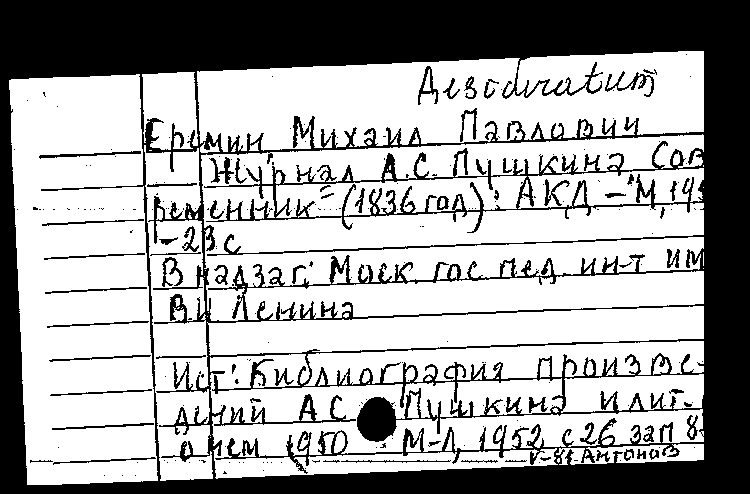 Дезidиratum
Еремин Михаил Павлович
Журнал А.С. Пушкина Сов
ременник" (1836 год): АКД – М, 195
-23 с
В надзаг: Моск. гос. пед. ин-т им
В И Ленина
Ист: Библиография произве-
дений А С Пушкина и лит-
о нем 1950 М-Л, 1952 с 26 зап 8
V-81 Антонов